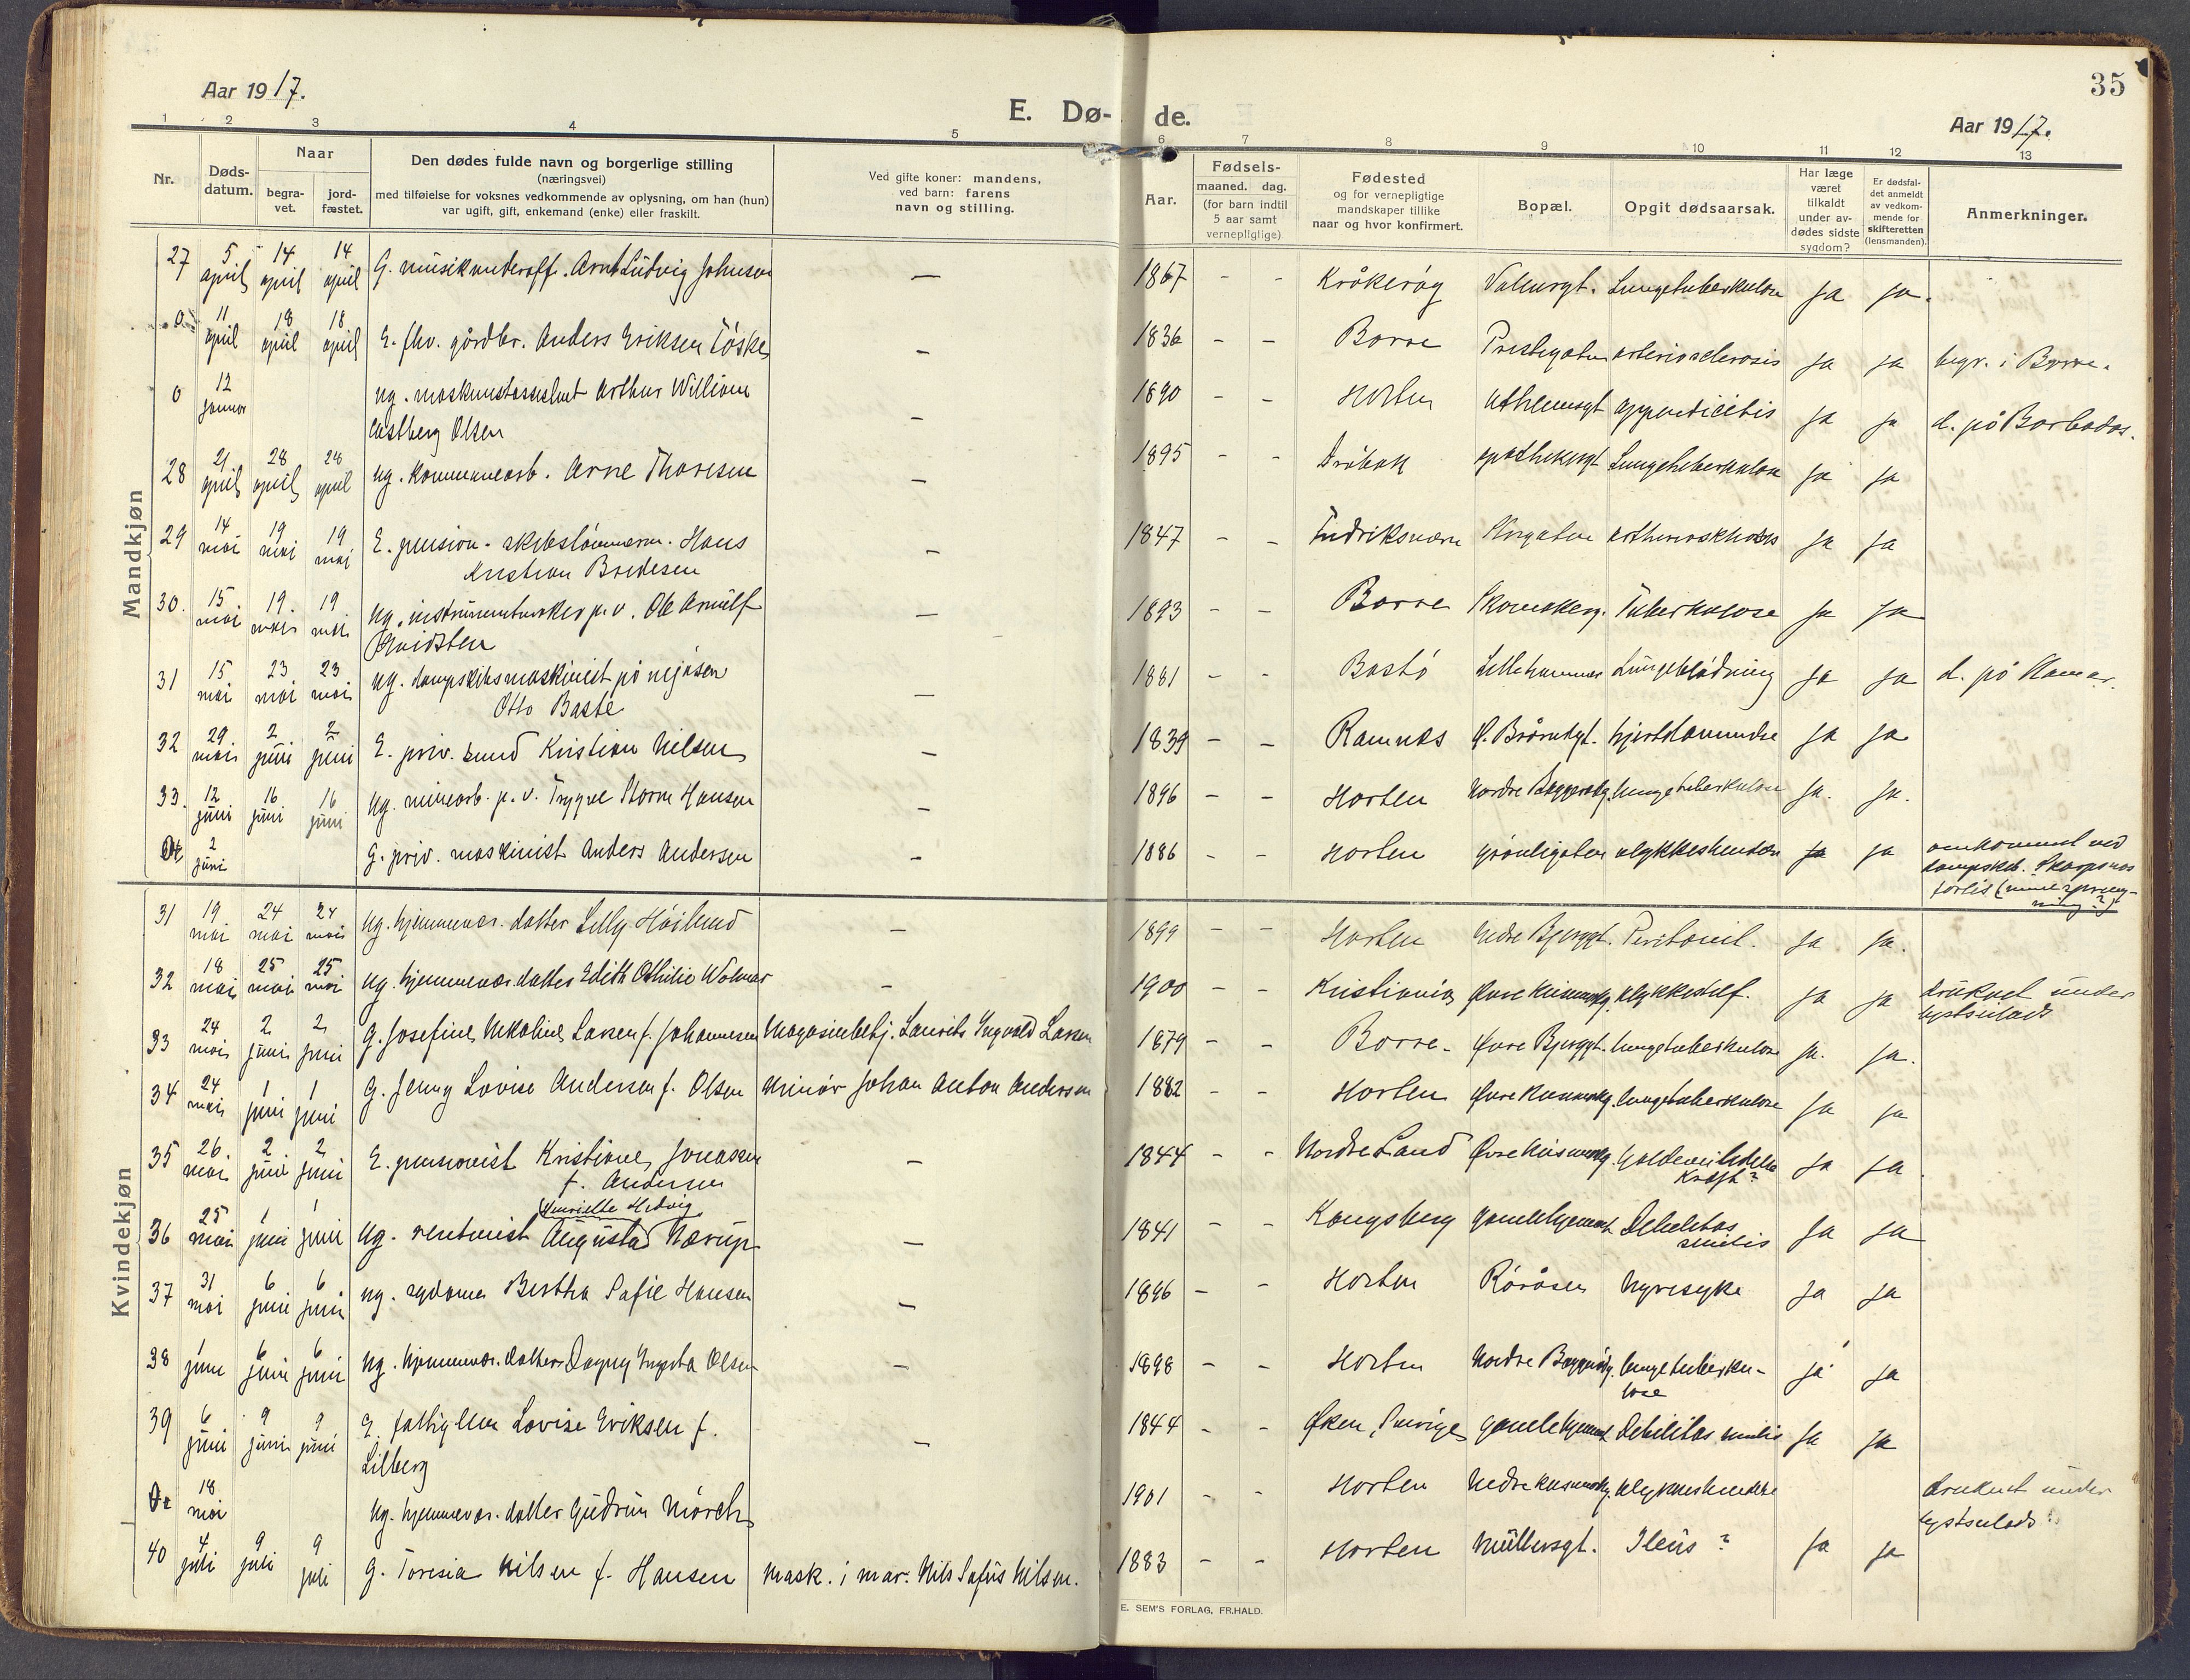 35
Aar 1917.
E. Dø- de.
Aar 1917.
1 2 3 4 5 6 7 8 9 10 11 12 13
Nr.
Døds-
datum.
Naar
begra-
vet.
jord-
fæstet.
Den dødes fulde navn og borgerlige stilling
(næringsvei)
med tilføielse for voksnes vedkommende av oplysning, om han (hun)
var ugift, gift, enkemand (enke) eller fraskilt.
Ved gifte koner: mandens,
ved barn: farens
navn og stilling.
Aar.
Fødsels-
maaned. dag.
(for barn indtil
5 aar samt
vernepligtige)
Fødested
og for vernepligtige
mandskaper tillike
naar og hvor konfirmert.
Bopæl.
Opgit dødsaarsak.
Har læge
været
tilkaldt
under av-
dødes sidste
sygdom?
Er dødsfal-
det anmeldt
av vedkom-
mende for
skifteretten
(lensmanden).
Anmerkninger.
Mandkjøn
27 5 april 14 april 14 april G. musikunderoff. Arnt Ludvig Johnsen — 1867 - - Kråkerøy Lungetuberkulose ja ja.
0 11 april 18 april 18 april E. fhv. gårdbr. Anders Eriksen — 1836 - - Borre Prestegaten arteriosclerosis ja ja begr. i Borre.
0 12 januar ug. maskinistassistent Arthur William
Castberg Olsen — 1890 - - Horten appendicitis ja ja d. på Barbados.
28 21 april 28 april 28 april ug. kommunearb. Arne Thoresen — 1895 - - Drøbak apothekergt Lungetuberkulose ja ja
29 14 mai 19 mai 19 mai E. pension. skibstømmerm. Hans
Kristian Bredesen — 1847 - - Fredriksværn Storgaten ja ja
30. 15. mai 19. mai 19. mai ug. instrumentmaker p. v. Ole Arnulf
Qvidsten — 1893 - - Borre Tuberkulose ja ja
31 15 mai 23 mai 23 mai ug. dampskibsmaskinist på mjøsen
Otto Bastø — 1881 - - Bastø Lillehammer Lungeblødning ja ja d. på Hamar.
32 29 mai 2 juni 2 juni E. priv. smed Kristian Nilsen — 1839 - - Ramnes hjertelammelse ja ja
33. 12 juni 16 juni 16 juni ug. minearb. p. v. Trygve Storm Hansen — 1896 - - Horten lungetuberkulose ja. ja.
2 juni G. priv. maskinist Anders Andersen — 1886 - - Horten Grønligaten ulykkeshendelse ja ja omkommet ved
dampskib. Skarpsnos
forlis (minespræng-
ning?)
Kvindekjøn
31 19 mai 24 mai 24 mai ug. hjemmevær. datter Lilly Høilund — 1899 - - Horten Nedre Bjerggt. Peritonit. ja ja.
32 18 mai 25 mai 25 mai ug. hjemmevær. datter Edith Othilie Wolmar — 1900 - - Kristiania Øvre Keisemarkg. ulykkestilf. ja ja druknet under
lystseilads
33 24 mai 2 juni 2 juni G. Josefine Nikoline Larsen f. Johannesen Magasinbetj. Laurits Ingvald Larsen 1879 - - Borre. Øvre Bjerggt. lungetuberkulose ja. ja.
34 24 mai 1 juni 1 juni G. Jenny Lovise Andersen f. Olsen Minør Johan Anton Andersen 1882 - - Horten Øvre Keisemarkg. lungetuberkulose ja ja
35 26. mai 2 juni 2 juni E. pensionist Kristiane Jonassen
f. Andersen — 1844 - - Nordre Land Øvre Keisemarkg. Galdeveiledelse
Kræft? ja ja.
36 25 mai 1 juni 1 juni ug. rentenist Henriette Hedvig
Augusta Nærup — 1841 - - Kongsberg gamlehjemmet Debilitas
senilis ja ja
37 31 mai 6 juni 6 juni ug. sydame Bertha Sofie Hansen — 1896 - - Horten Røråsen Nyresyke ja ja
38 1 juni 6 juni 6 juni ug. hjemmevær. datter Dagny Ingeborg Olsen — 1898 - - Horten lungetuberku-
lose ja ja
39 6 juni 9 juni 9 juni E. fattiglem Lovise Eriksen f.
Lilberg — 1844 - - Sverige gamlehjemmet Debilitas senilis ja ja
18 mai ug. hjemmevær. datter Gudrun Mørch 1901 - - Horten Nedre Keisemarkg. ulykkeshendelse druknet under
lystseilads.
40 4 juli 9 juli 9 juli G. Toresia Nilsen f. Hansen Mask. i mar. Nils Sofus Nilsen. 1883 - - Horten Müllersgt. Ileus? ja ja
E. SEM'S FORLAG, FR.HALD.